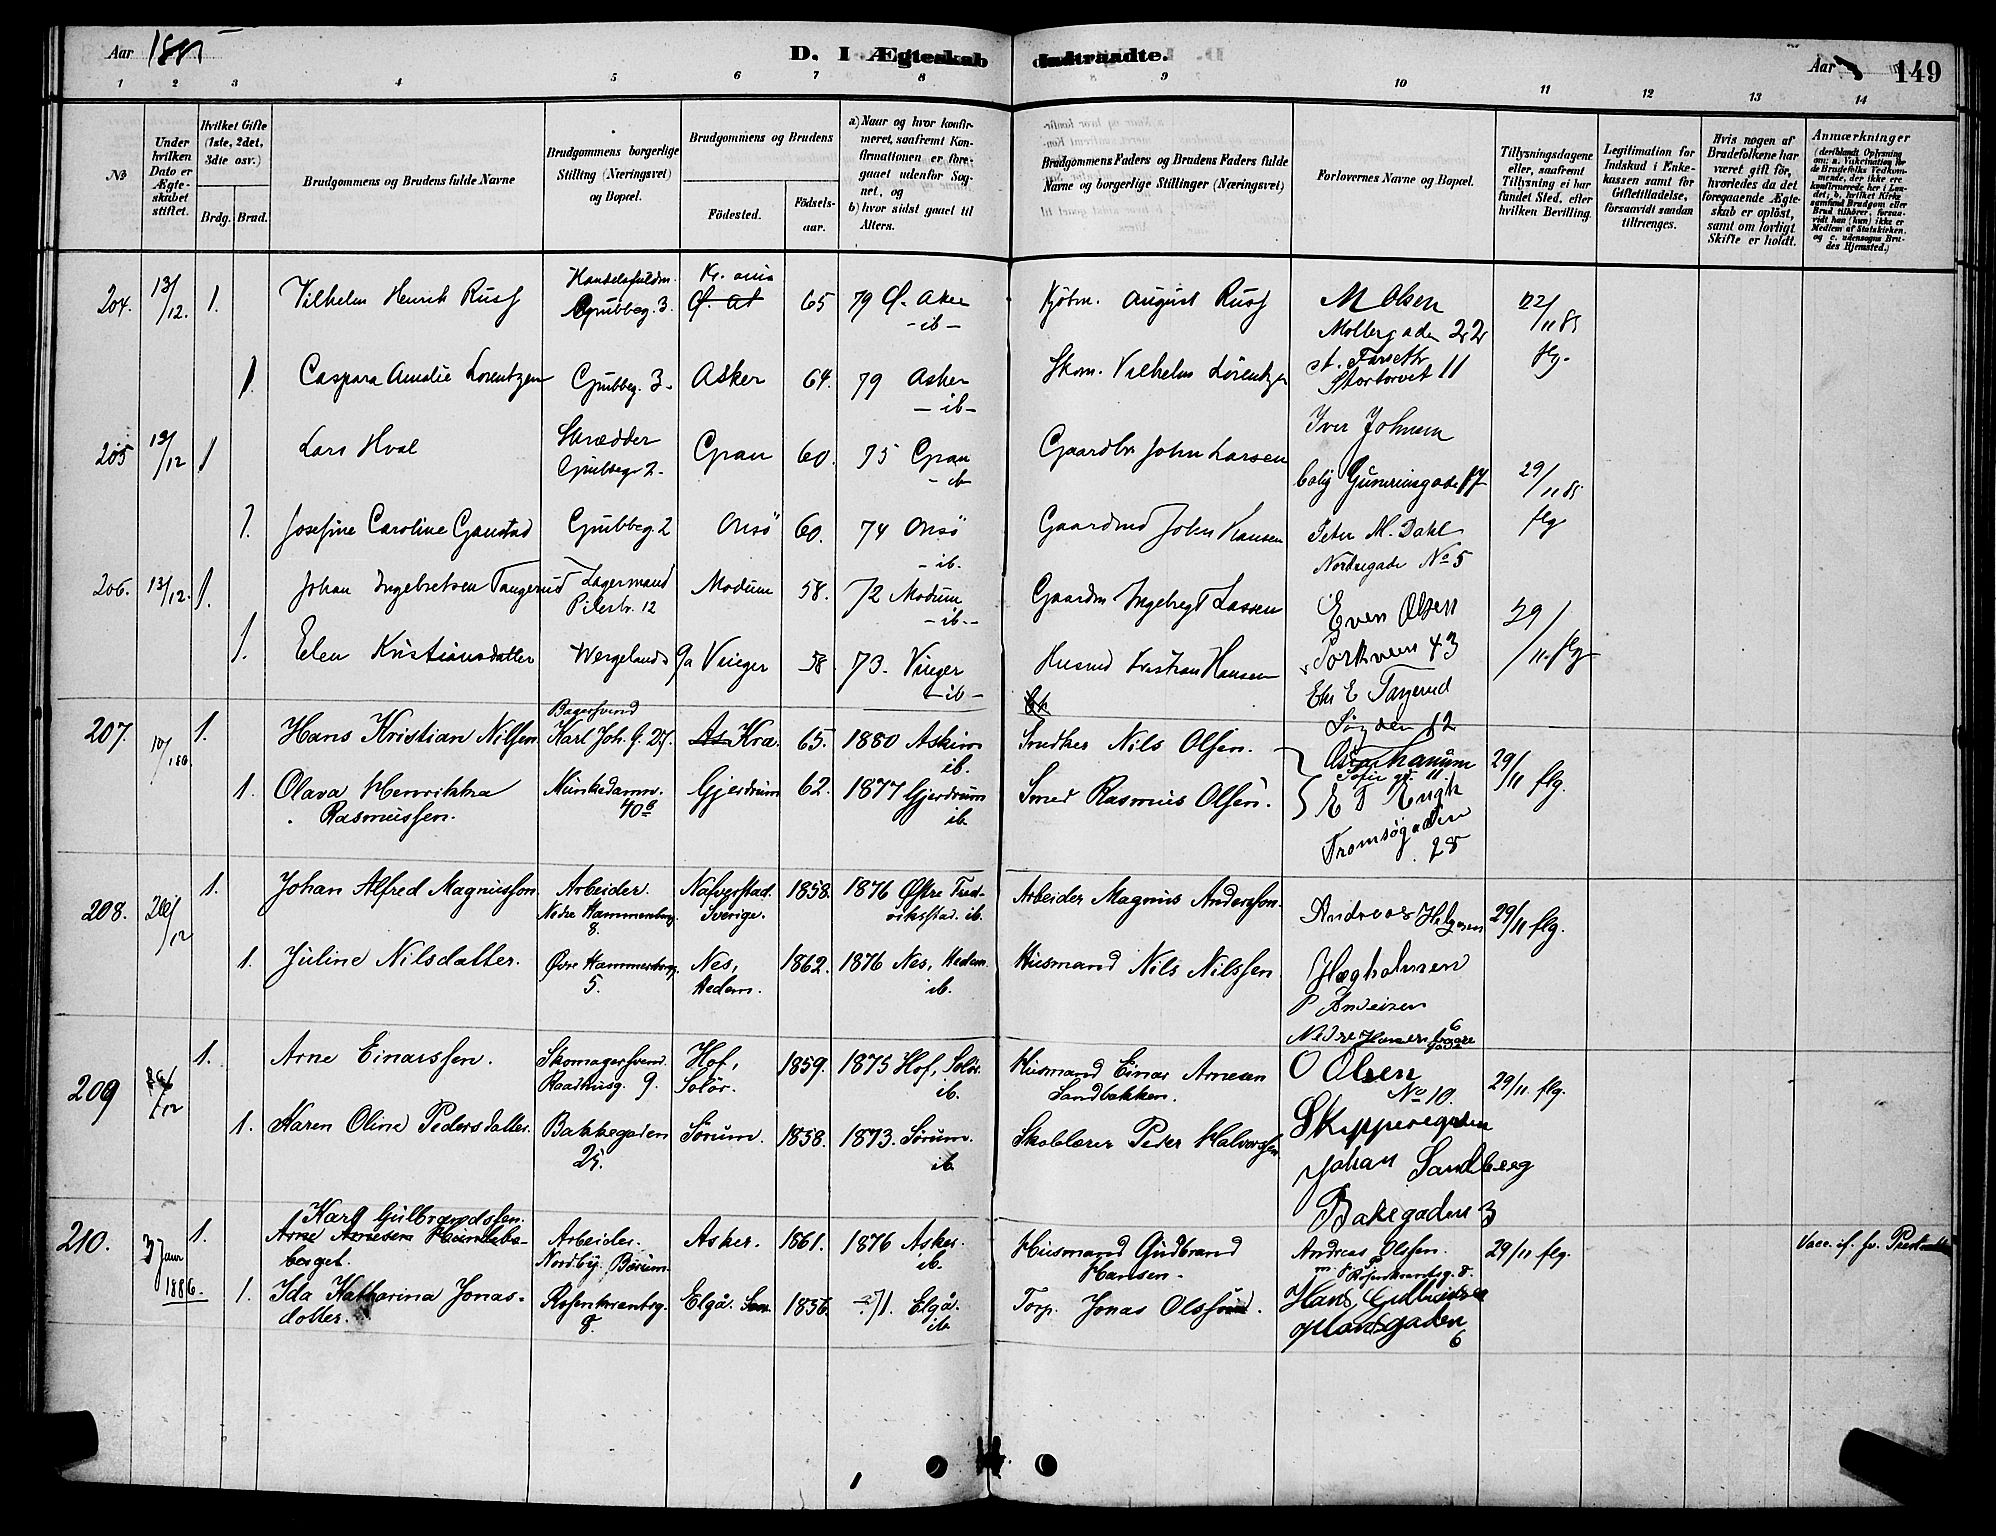 Aar 1885
D. I Ægteskab Indtraadte.
Aar
149
1 2 3 4 5 6 7 8 9 10 11 12 13 14
No
Under hvilken Dato er Ægteskabet stiftet.
Hvilket Gifte (1ste, 2det, 3die osv.)
Brdg. Brud.
Brudgommens og Brudens fulde Navne
Brudgommens borgerlige Stilling (Næringsvei) og Bopæl.
Brudgommens og Brudens
Födested.
Födsels-aar.
a) Naar og hvor konfirmeret, saafremt Konfirmationen er foregaaet udenfor Sognet, og
b) hvor sidst gaaet til Alters.
Brudgommens Faders og Brudens Faders fulde Navne og borgerlige Stillinger (Næringsvei)
Forlovernes Navne og Bopæl.
Tillysningsdagene eller, saafremt Tillysning ei har fundet Sted, efter hvilken Bevilling.
Legitimation for Indskud i Enkekassen samt for Giftetilladelse, forsaavidt saadan tiltrænges.
Hvis nogen af Brudefolkene har været gift för, hvorledes da det foregaaende Ægteskab er oplöst, samt om lovligt Skifte er holdt.
Anmærkninger
(deriblandt Oplysning om: a. Vakcination for de Brudefolks Vedkommende, der ikke ere konfirmerede her i Landet; b. hvilket Kirkesamfund Brudgom eller Brud tilhörer, forsaavidt han (hun) ikke er Medlem af Statskirken, og c. udensogns Brudes Hjemsted.)
204. 13/12. 1. Vilhelm Henrik Russ Handelsfuldm. Grubbeg. 3. 65 79 Ø. Aker -ib- Kjöbm. August Russ M Olsen Mollergaden 22 22/11 85 flg.
1. Caspara Amalie Lorentzen Grubbeg. 3. Asker 64. 79 Asker -ib- Skom. Vilhelm Lorentzen Stortorvet 11
205 12/12 1 Lars Hval Skrædder Grubbeg. 2. Gran 60. 75 Gran -ib- Gaardbr. John Larsen Iver Johnsen 29/11 85 flg
1. Josefine Caroline Ganstad Grubbeg. 2 Onsö 60. 74 Onsö -ib. Gaardmd John Hansen Peter M. Dahl Nordregade No 5
206. 13/12. 1. Johan Ingebretsen Tangerud Lagermand Pilestr. 12 Modum 58. 72 Modum -ib- Gaardm Ingebregt Larsen Even Olsen Parkveien 43 29/11. flg
1. Elen Kristiansdatter Wergelands ga Vinger 58 73. Vinger -ib- Husmd Kristian Hansen Tangerud 12
207. 10/1 86. 1. Hans Kristian Nilsen. Bagersvend Karl Joh. G. 27. Kra. 65. 1880 Askim ib. Snedker Nils Olsen. Oscar Hanum Sofie gt. 11. 29/11 flg.
1. Olava Henrikka Rasmussen. Munkedamv. 40B Gjerdrum 62. 1877 Gjerdrum ib. Smed Rasmus Olsen. E T Engh Tromsøgaden 28
208. 26/12 1. Johan Alfred Magnusson. Arbeider. Nedre Hammersborg. 8. Nafverstad. Sverige. 1858. 1876 Østre Fredrikstad. ib. Arbeider Magnus Andersson. Andreas Helgesen 29/11 flg.
1. Juline Nilsdatter. Øvre Hammersborg. 5. Nes, Hedem. 1862. 1876 Nes, Hedem. ib. Husmand Nils Nilssen Hægholmen
209 26/12 1. Arne Einarssen. Skomagersvend. Raadhusg. 9. Hof, Solør. 1859. 1875 Hof, Solør. ib. Husmand Einar Arnesen Sandbakken. O Olsen No 10. Skippergaden 29/11. flg.
1. Karen Oline Pedersdatter. Bakkegaden 25. Sörum. 1858. 1873. Sörum. ib. Skolelærer Peder Halvorsen Johan Sandberg Bakegaden 3
210. 3 Janr 1886. 1. Karl Gulbrandssen. Arne Arnesen Himlebaberget. Arbeider. Nordby. Bærum. Asker. 1861. 1876 Asker. ib. Husmand Gudbrand Hansen. Andreas Olsen. Rosenkrantzg. 8. 29/11 flg. Vacc. if. fv. Præsteatt.
1. Ida Katharina Jonasdotter. Rosenkrantzg. 8. Elgå. 1856. 71. Elgå. ib. Torp. Jonas Olsson. Hans 6